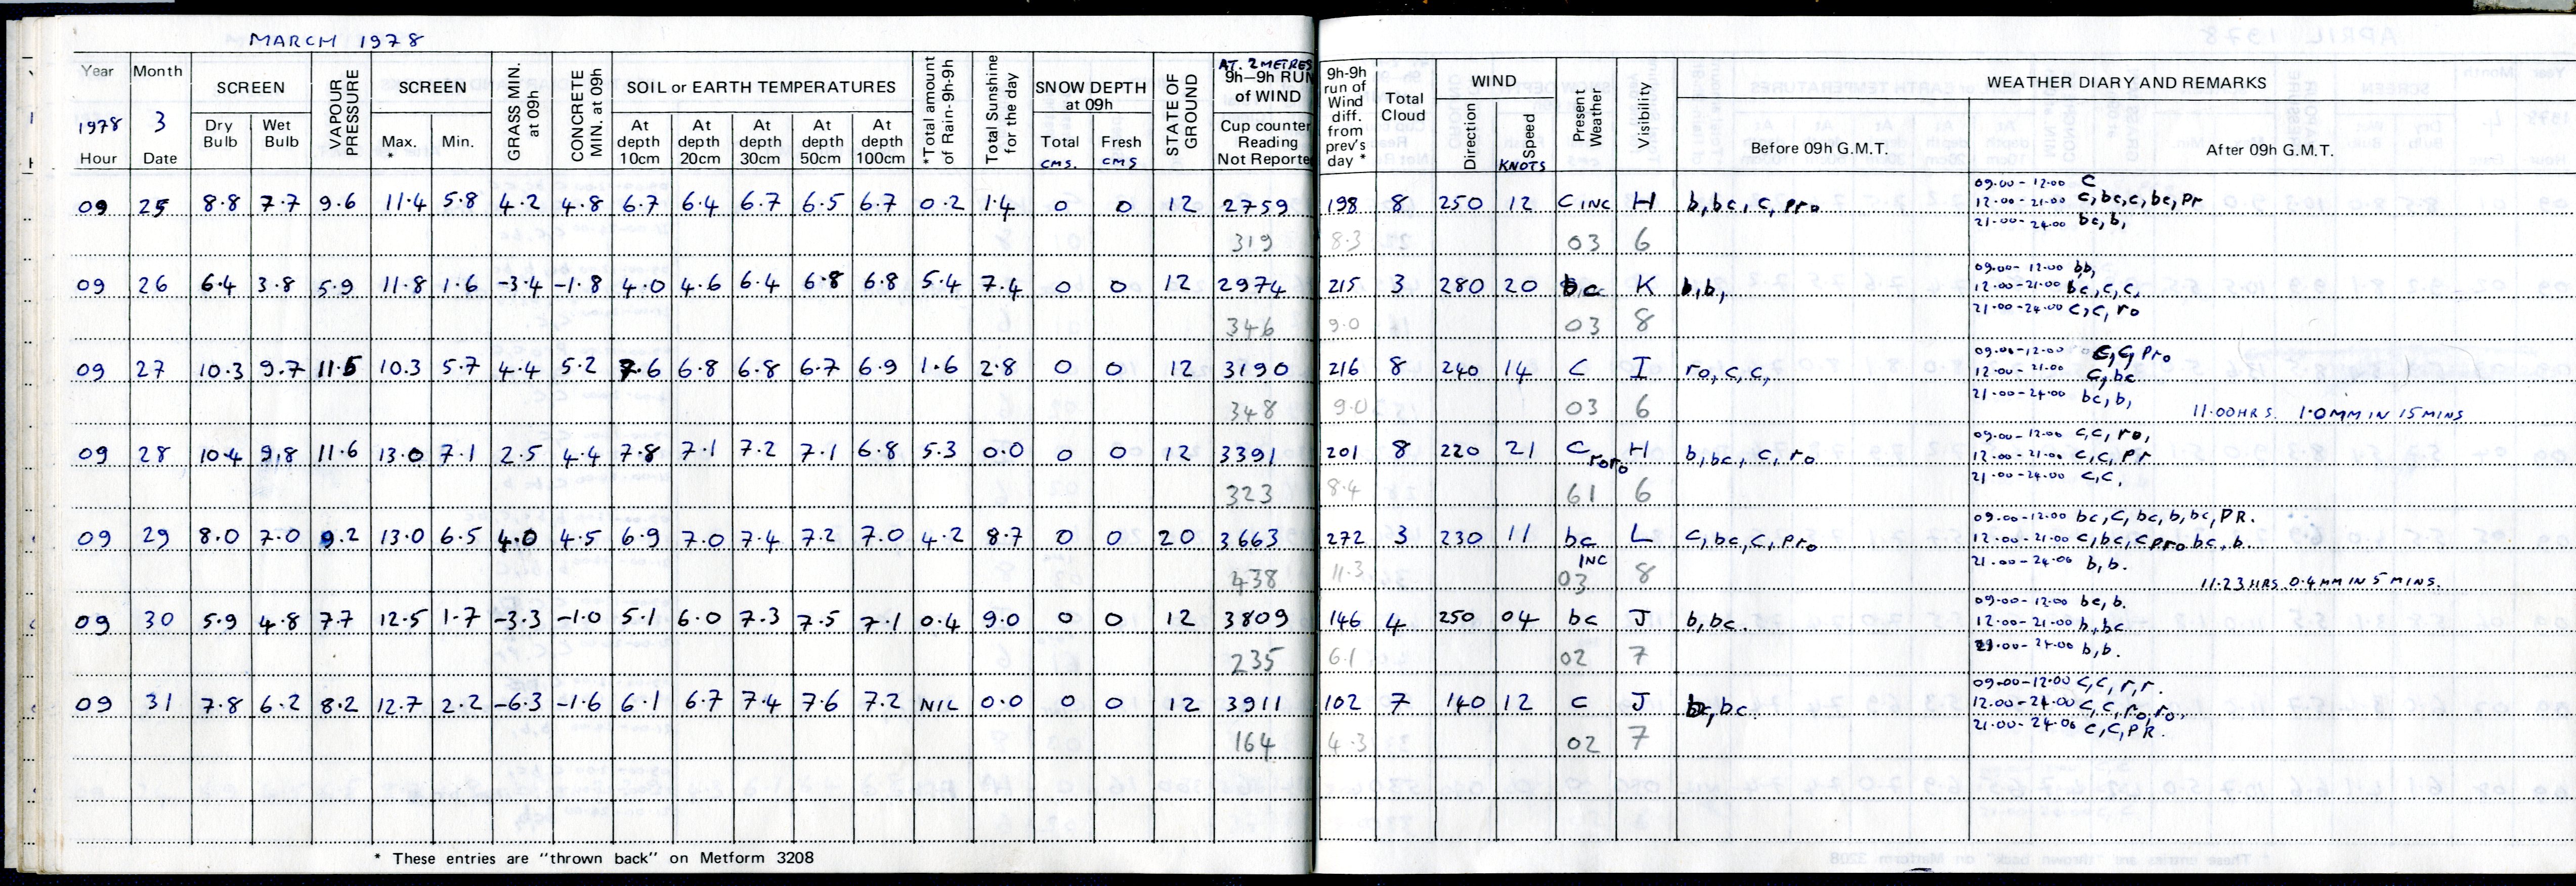 MARCH 1978
Year Month SCREEN VAPOUR PRESSURE SCREEN GRASS MIN. at 09h CONCRETE MIN. at 09h SOIL or EARTH TEMPERATURES *Total amount of Rain-9h-9h Total Sunshine for the day SNOW DEPTH at 09h STATE OF GROUND AT. 2 METRES 9h–9h RUN of WIND 9h-9h run of Wind diff. from prev's day * Total Cloud WIND Present Weather Visibility WEATHER DIARY AND REMARKS
1978 3 Dry Bulb Wet Bulb Max. * Min. At depth 10cm At depth 20cm At depth 30cm At depth 50cm At depth 100cm Total CMS. Fresh CMS Cup counter Reading Not Reported Direction Speed KNOTS Before 09h G.M.T. After 09h G.M.T.
Hour Date
09.00 - 12.00 C
09 25 8.8 7.7 9.6 11.4 5.8 4.2 4.8 6.7 6.4 6.7 6.5 6.7 0.2 1.4 0 0 12 2759 198 8 250 12 C INC H b, bc, c, pro 12.00 - 21.00 C, bc, c, bc, pr
21.00 - 24.00 bc, b,
319 8.3 03 6
09.00 - 12.00 bb,
09 26 6.4 3.8 5.9 11.8 1.6 -3.4 -1.8 4.0 4.6 6.4 6.8 6.8 5.4 7.4 0 0 12 2974 215 3 280 20 bc K b, b, 12.00-21.00 bc, c, c,
21.00-24.00 c, c, ro
346 9.0 03 8
09.00-12.00 C, C, pro
09 27 10.3 9.7 11.5 10.3 5.7 4.4 5.2 7.6 6.8 6.8 6.7 6.9 1.6 2.8 0 0 12 3190 216 8 240 14 C I ro, c, c, 12.00 - 21.00 C, bc
21.00-24.00 bc, b,
348 9.0 03 6 11.00HRS. 1.0MM IN 15MINS
09.00 - 12.00 C, C, ro,
09 28 10.4 9.8 11.6 13.0 7.1 2.5 4.4 7.8 7.1 7.2 7.1 6.8 5.3 0.0 0 0 12 3391 201 8 220 21 C roro H b, bc, c, ro 12.00 - 21.00 C, C, pr
21.00-24.00 C, C,
323 8.4 61 6
09.00-12.00 bc, C, bc, b, bc, PR.
09 29 8.0 7.0 9.2 13.0 6.5 4.0 4.5 6.9 7.0 7.4 7.2 7.0 4.2 8.7 0 0 20 3663 272 3 230 11 bc INC L C, bc, C, pro 12.00-21.00 C, bc, C pro bc, b.
21.00-24.00 b, b.
438 11.3 03 8 11.23 HRS. 0.4 MM IN 5 MINS.
09.00 - 12.00 bc, b.
09 30 5.9 4.8 7.7 12.5 1.7 -3.3 -1.0 5.1 6.0 7.3 7.5 7.1 0.4 9.0 0 0 12 3809 146 4 250 04 bc J b, bc. 12.00-21.00 b, bc
21.00-24.00 b, b.
235 6.1 02 7
09.00-12.00 C, C, r, r.
09 31 7.8 6.2 8.2 12.7 2.2 -6.3 -1.6 6.1 6.7 7.4 7.6 7.2 NIL 0.0 0 0 12 3911 102 7 140 12 C J b, bc. 12.00-24.00 C, C, ro, ro.
21.00-24.00 C, C, PR.
164 4.3 02 7
* These entries are "thrown back" on Metform 3208